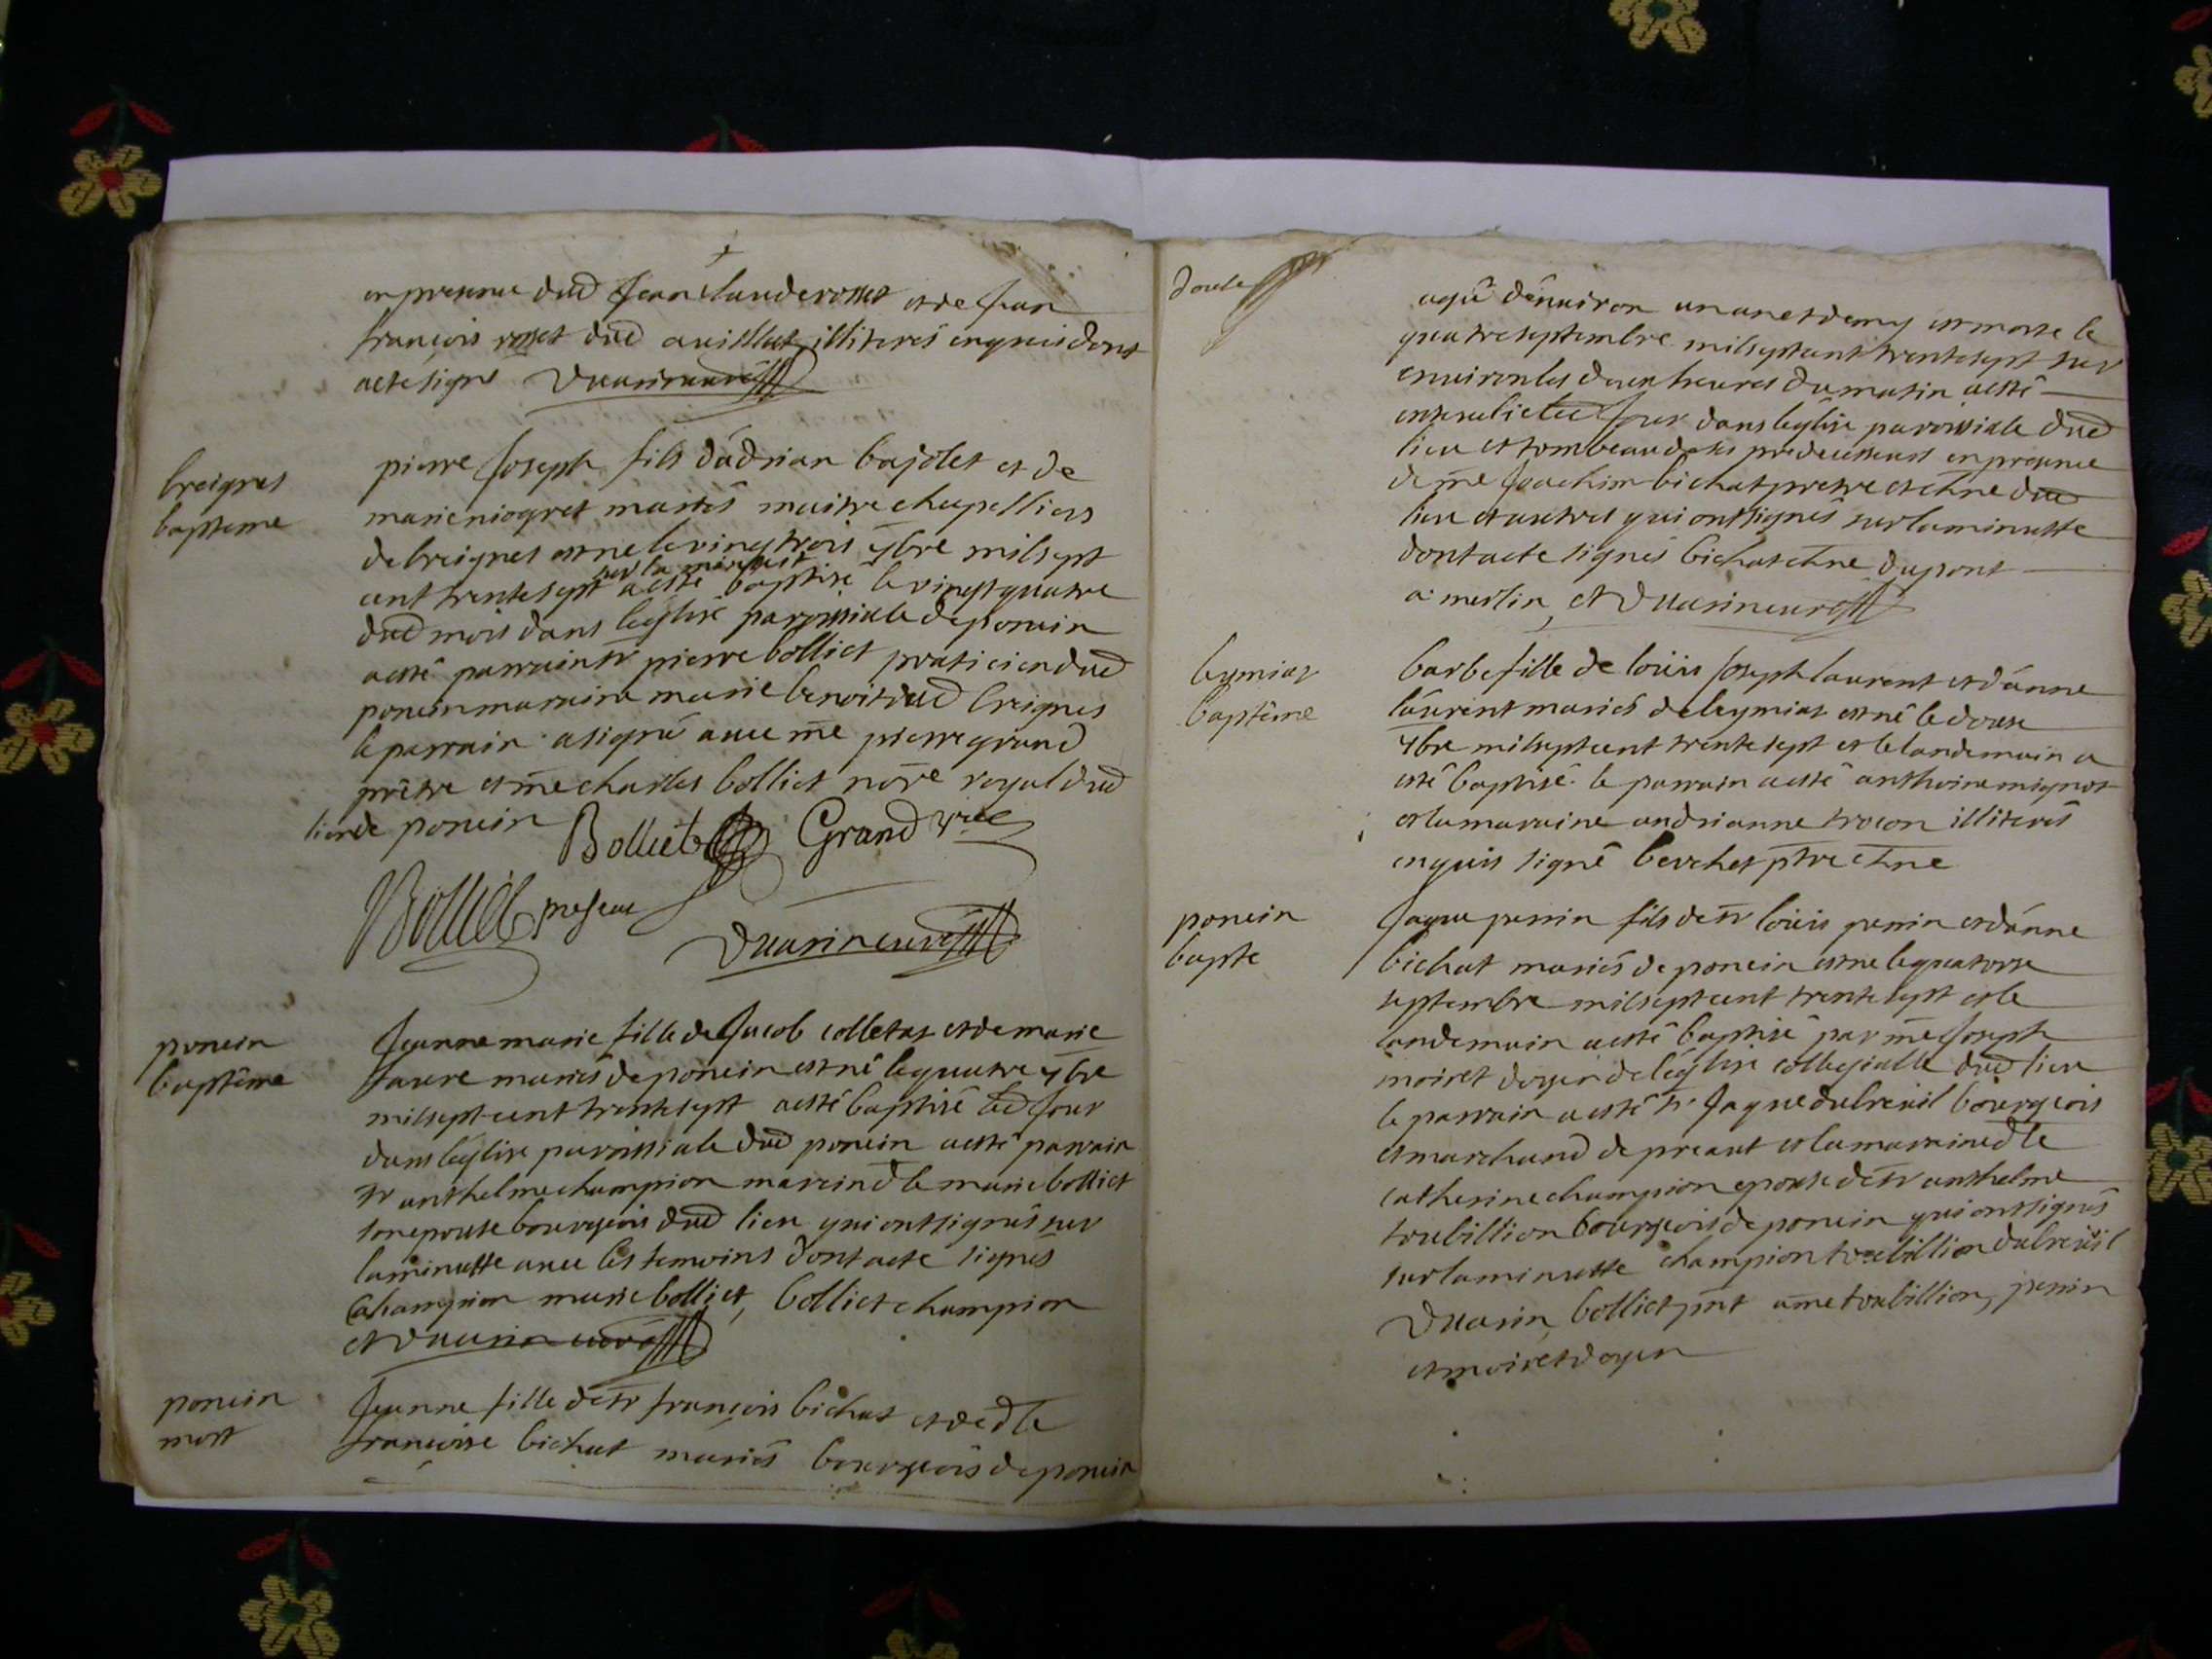 en presence dud Jean claude rosset et de Jean
françois rosset dud avilliat illiterés enquis dont
acte signe Duarin curé
breignes
bapteme
pierre Joseph fils d'adrian bajolet et de
marie niogret mariés maitre chapelliers
de breignes est ne le vingt trois 7bre mil sept
cent trente sept sur la minuit a esté baptisé le vingt quatre
dud mois dans l'eglise parroissiale de poncin
a esté parrain sr pierre bolliet praticien dud
poncin marraine marie benoit dud breignes
le parrain a signé avec me pierre grand
prêtre et me charles bolliet nore royal dud
lieu de poncin Bolliet Grand
Bolliet present
Duarin curé
poncin
baptême
Jeanne marie fille de Jacob colletas et de marie
favre mariés de poncin est né le quatre 7bre
mil sept cent trente sept a esté baptisé led Jour
dans l'eglise parroissiale dud poncin a esté parrain
sr anthelme champion mareine dle marie bolliet
son epouse bourgeois dud lieu qui ont signés sur
la minutte avec les temoins dont acte signés
champion marie bolliet, bolliet champion
et Duarin curé
poncin
mort
Jeanne fille de sr françois bichat et de dle
francoise bichat mariés bourgeois de poncin
double
agé d'environ un an et demy est morte le
quatre septembre mil sept cent trente sept sur
environ les deux heures du matin a esté
ensevelie led Jour dans l'eglise parroissiale dud
lieu et tombeau de ses predecesseurs en presence
de me Joachim bichat pretre et chne dud
lieu et autres qui ont signés sur la minutte
dont acte signés bichat chne dupont
a: merlin, et Duarin curé
leymiat
baptême
barbe fille de loüis Joseph laurent et d'anne
laurent mariés de leymiat est né le douse
7bre mil sept cent trente sept et le landemain a
esté baptisé. le parrain a esté anthoine mignot
et la maraine andrianne trocon illiterés
enquis signé berchet ptre chne
poncin
bapte
Jaque perrin fils de sr loüis perrin et d'anne
bichat mariés de poncin est ne le quatorse
septembre mil sept cent trente sept et le
landemain a esté baptisé par me Joseph
moiret doyen de l'église collegialle dud lieu
le parrain a esté sr Jaque dubreüil bourgeois
et marchand de preaut et la maraine dle
catherine champion epouse de sr anthelme
toubillion bourgeois de poncin qui ont signés
sur la minutte champion toubillion dubreüil
Duarin, bolliet pnt ame toubillion, perrin
et moiret doyen